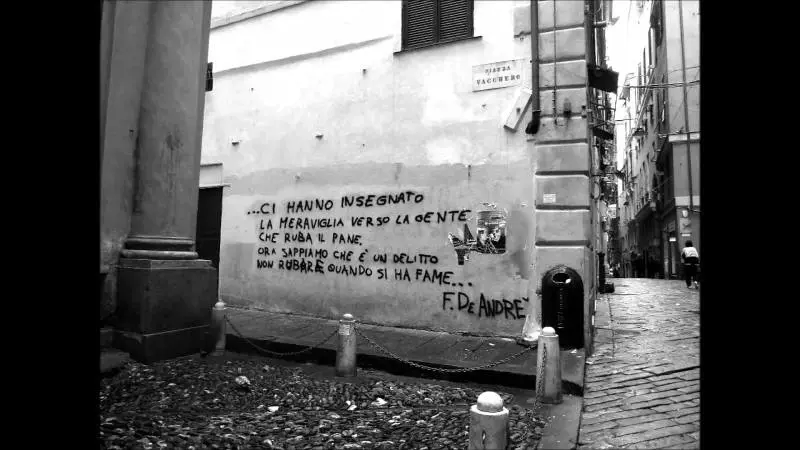 PIAZZA
VACCHERO
...CI HANNO INSEGNATO
LA MERAVIGLIA VERSO LA GENTE
CHE RUBA IL PANE,
ORA SAPPIAMO CHE È UN DELITTO
NON RUBARE QUANDO SI HA FAME...
F. DE ANDRE'